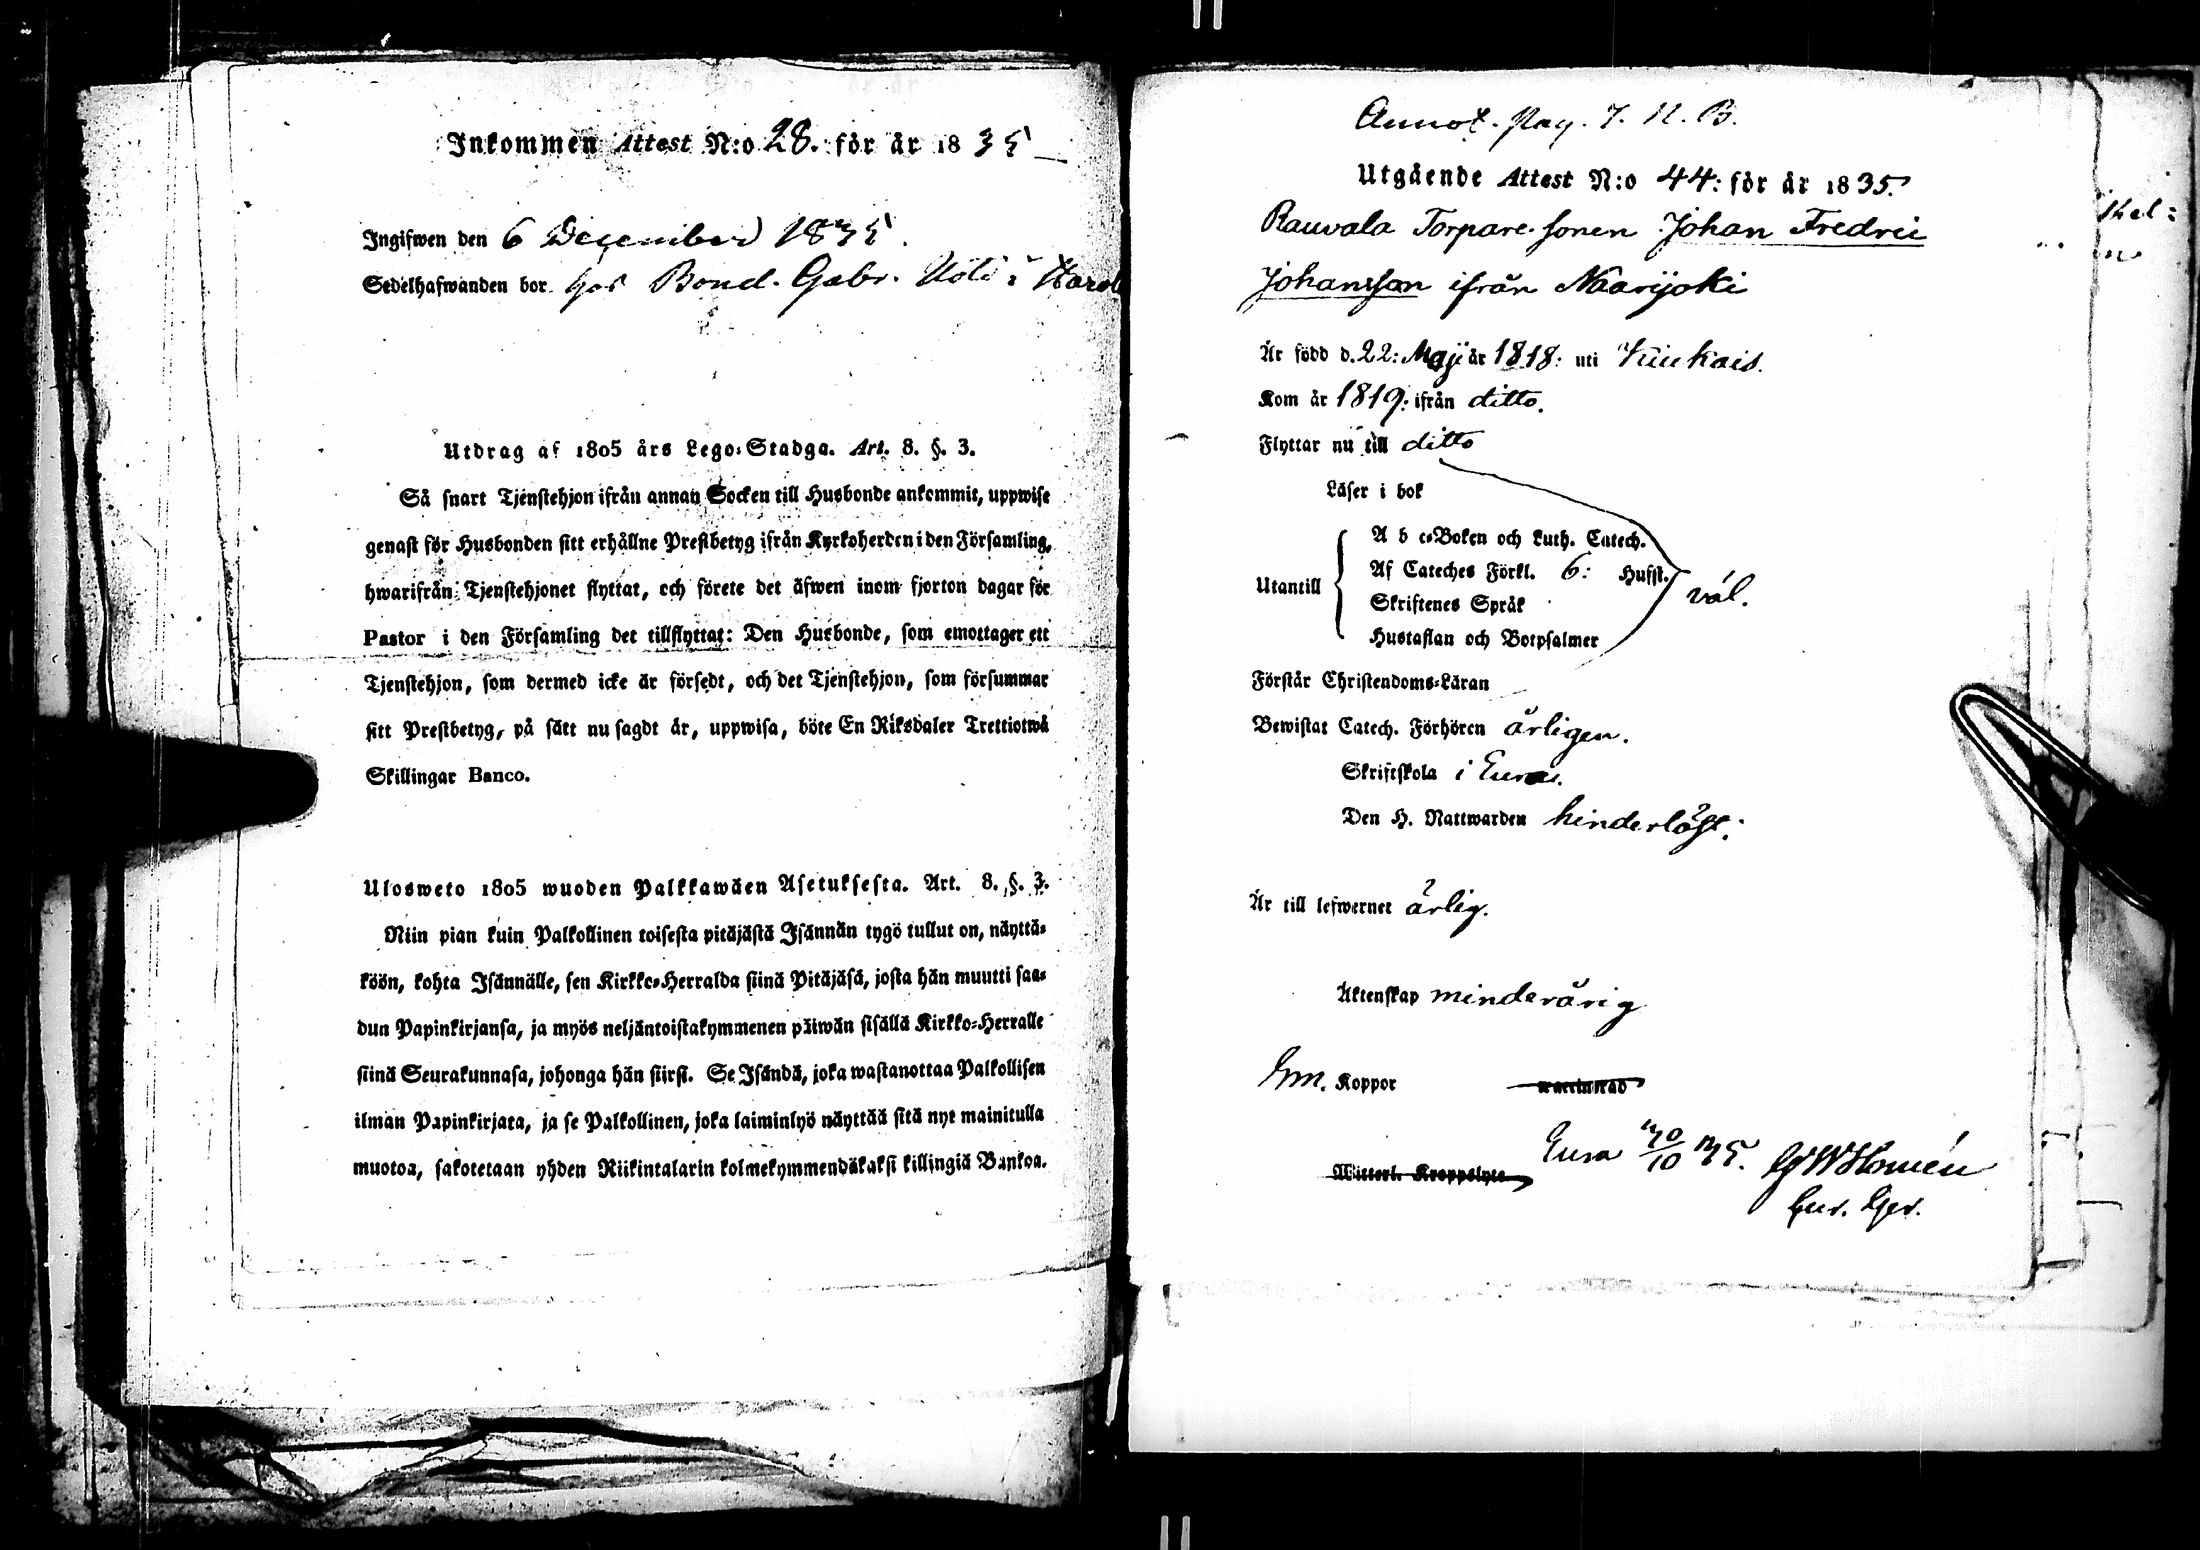 Inkommen Attest N:o 28. för år 1835
Ingifwen den 6 December 1835.
Sedelhafwanden bor hos Bond. Gabr. Uoti i
Utdrag af 1805 års Lego-Stadga. Art. 8. §. 3.
Så snart Tjenstehjon ifrån annan Socken till Husbonde ankommit, uppwise
genast för Husbonden sitt erhållne Prestbetyg ifrån Kyrkoherden i den Församling,
hwarifrån Tjenstehjonet flyttat, och förete det äfwen inom fjorton dagar för
Pastor i den Församling det tillflyttat: Den Husbonde, som emottager ett
Tjenstehjon, som dermed icke är försedt, och det Tjenstehjon, som försummar
sitt Prestbetyg, på sätt nu sagdt är, uppwisa, böte En Riksdaler Trettiotwå
Skillingar Banco.
Ulosweto 1805 wuoden Palkkawäen Asetuksesta. Art. 8. §. 3.
Niin pian kuin Palkollinen toisesta pitäjästä Isännän tygö tullut on, näyttä-
köön, kohta Isännälle, sen Kirkko-Herralda siinä Pitäjäsä, josta hän muutti saa-
dun Papinkirjansa, ja myös neljäntoistakymmenen päiwän sisällä Kirkko-Herralle
siinä Seurakunnasa, johonga hän siirsi. Se Isändä, joka wastanottaa Palkollisen
ilman Papinkirjata, ja se Palkollinen, joka laiminlyö näyttää sitä nyt mainitulla
muotoa, sakotetaan yhden Riikintalarin kolmekymmendäkaksi killingiä Bankoa.
Annot. pag. 7. N. B.
Utgående Attest N:o 44: för år 1835.
Rauvala Torpare sonen Johan Fredric
Johansson ifrån Naarijoki
Är född d. 22: Maji år 1818: uti Kiukais.
Kom år 1819: ifrån ditto.
Flyttar nu till ditto
Läser i bok
A b c-Boken och Luth. Catech.
Utantill Af Cateches Förkl. 6: Hufst. väl.
Skriftenes Språk
Hustaflan och Botpsalmer
Förstår Christendoms-Läran
Bewistat Catech. Förhören årligen.
Skriftskola i Eura.
Den H. Nattwarden hinderlöst.
Är till lefwernet ärlig.
Äktenskap minderårig
Koppor
Witterl. Kroppslyte
Eura 30/10 35. Homén